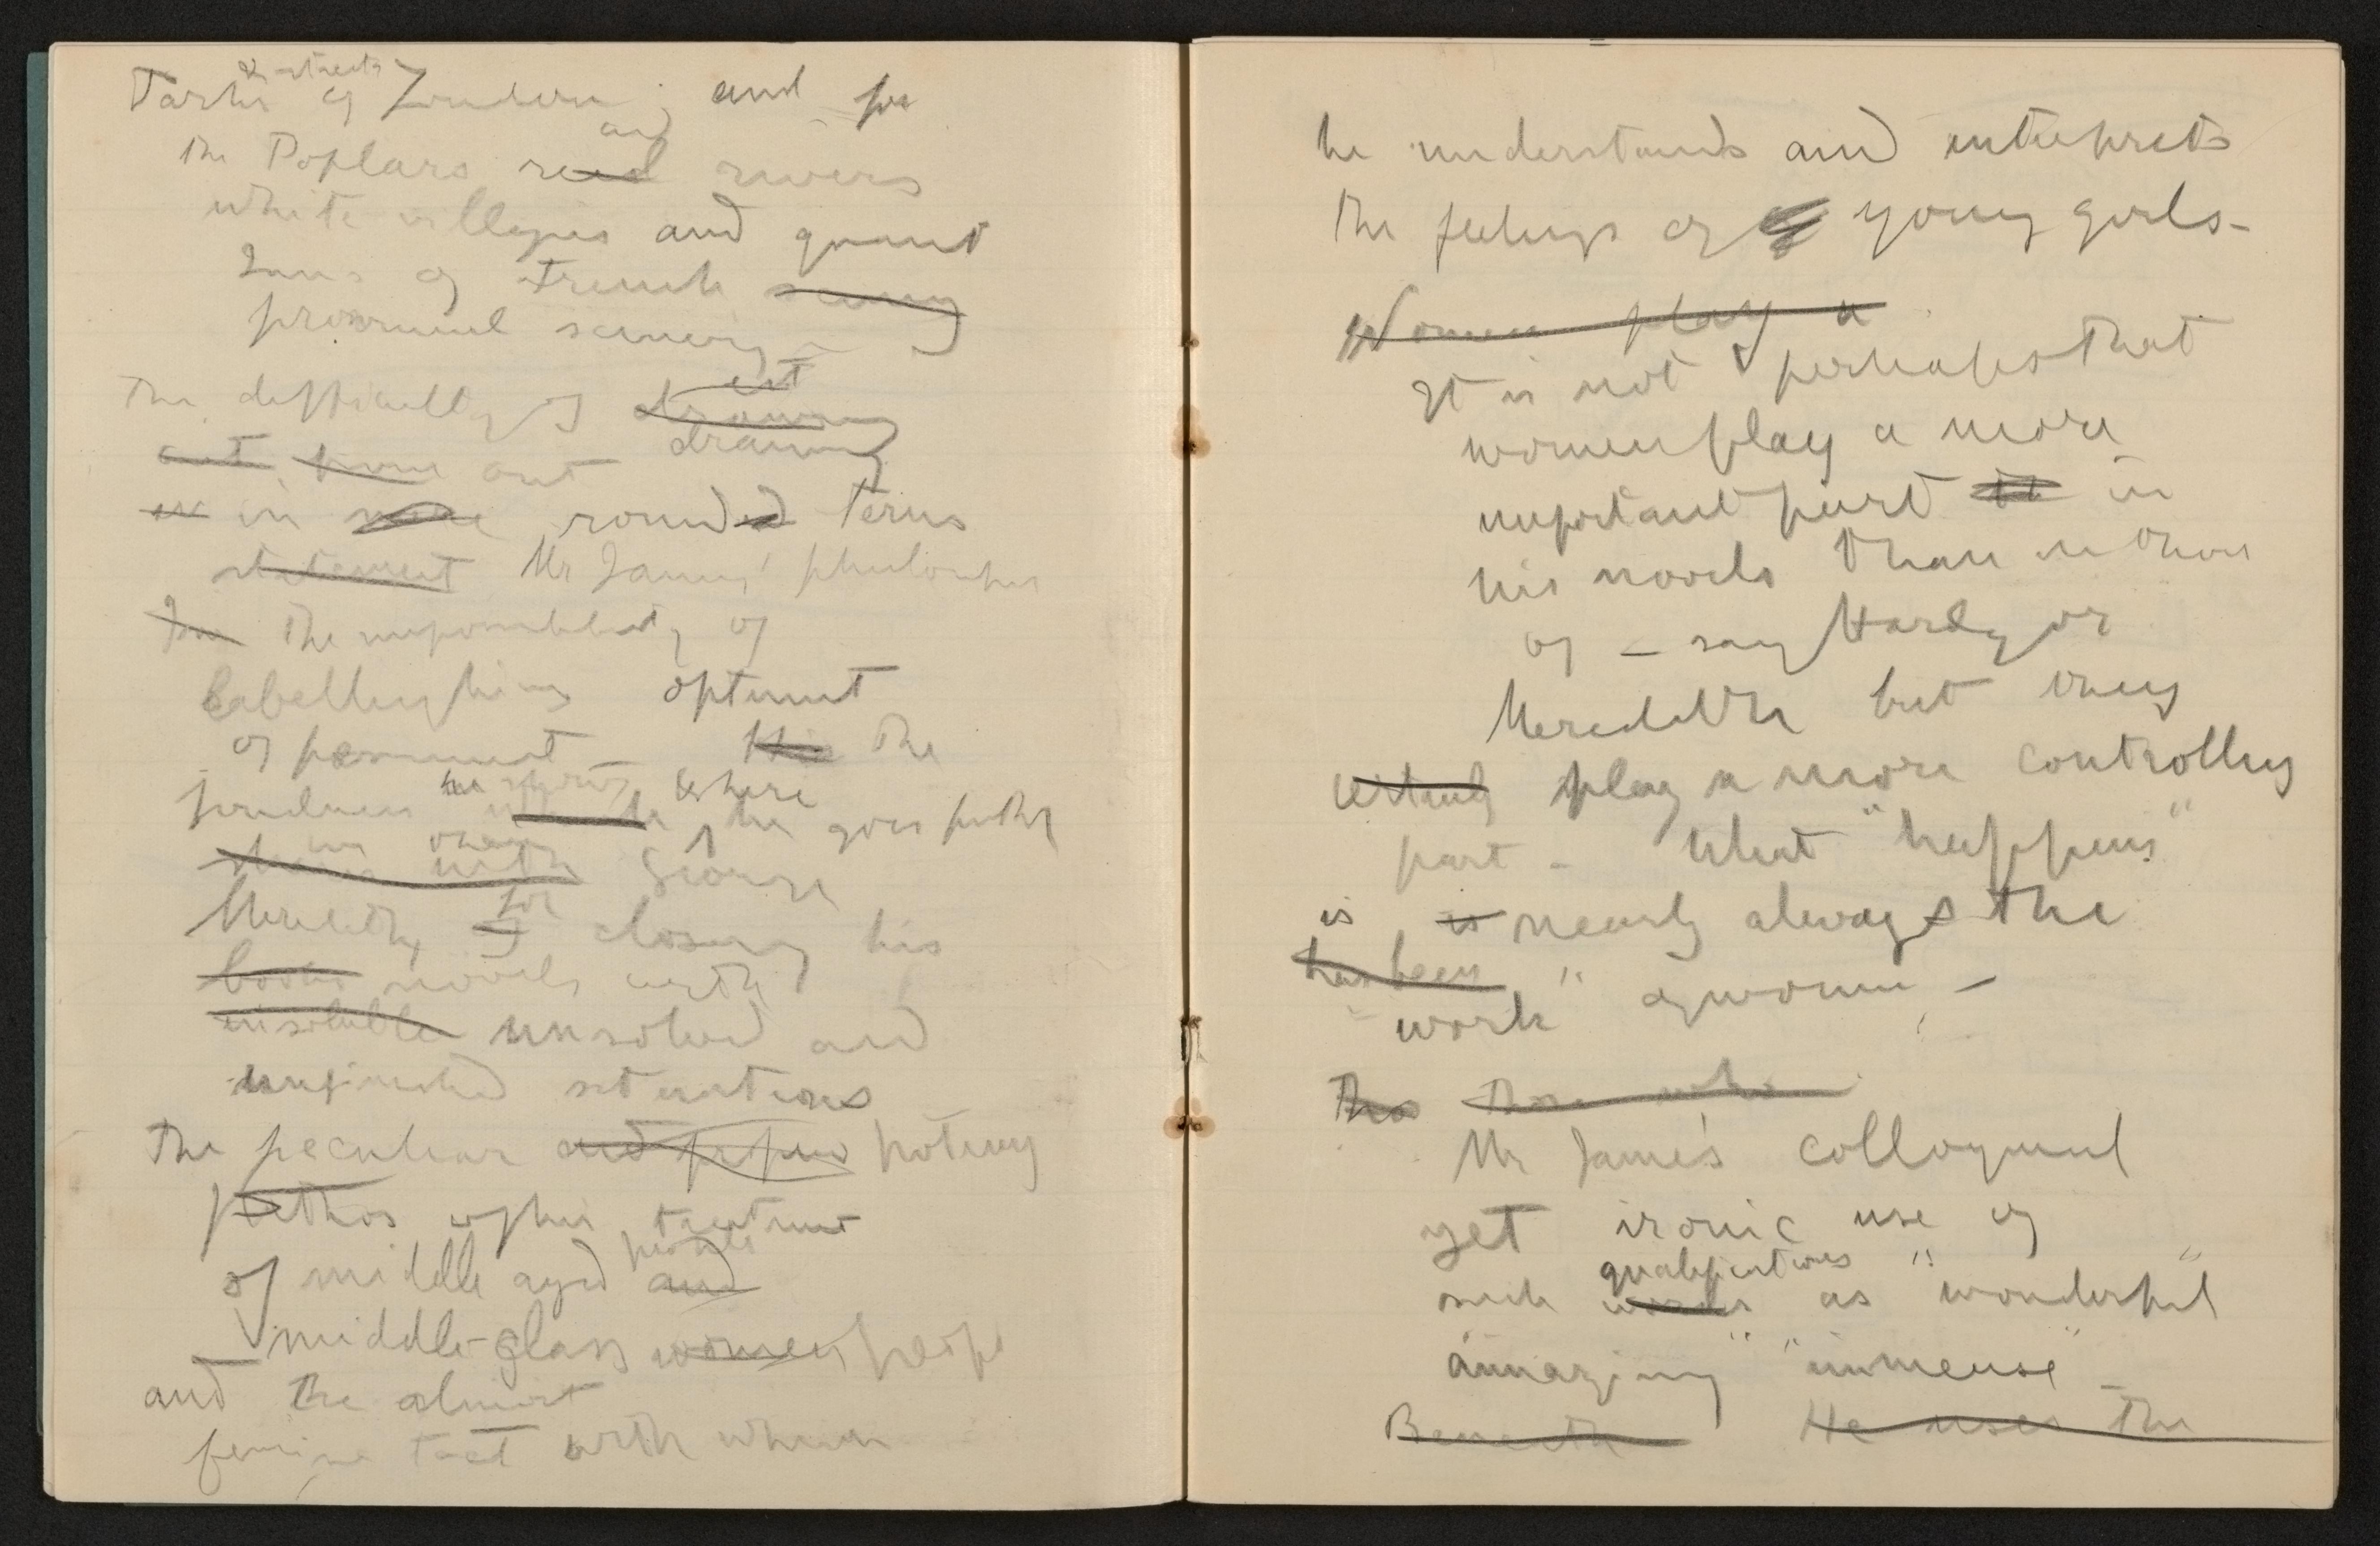 & streets
Parks of London; and for
and
the Poplars reed rivers
white villages and quaint
Inns of French scenery
provincial scenery –
The difficulty of drawing
out from out drawing
in rounded terms
statement Mr James' philosophy
The impossibility of
labelling him optimist
or pessimist – this The
he shows where
he goes further
with George
Meredith, for closing his
books novels with
insoluble unsolved and
unfinished situations
The peculiar and potency
pathos of his treatment
people
of middle aged and
middle-class women people
and the almost
feminine tact with which
he understands and interprets
the feelings of young girls –
Women play a
It is not perhaps that
women play a more
important part in
his novels than in those
of – say Hardy or
Meredith but they
certainly play a more controlling
part – What "happens"
is is nearly always the
has been
"work" of women –
Thos Those who
Mr James's colloquial
yet ironic use of
qualifications
such words as "wonderful"
"amazing" "immense" –
Beneath He uses the